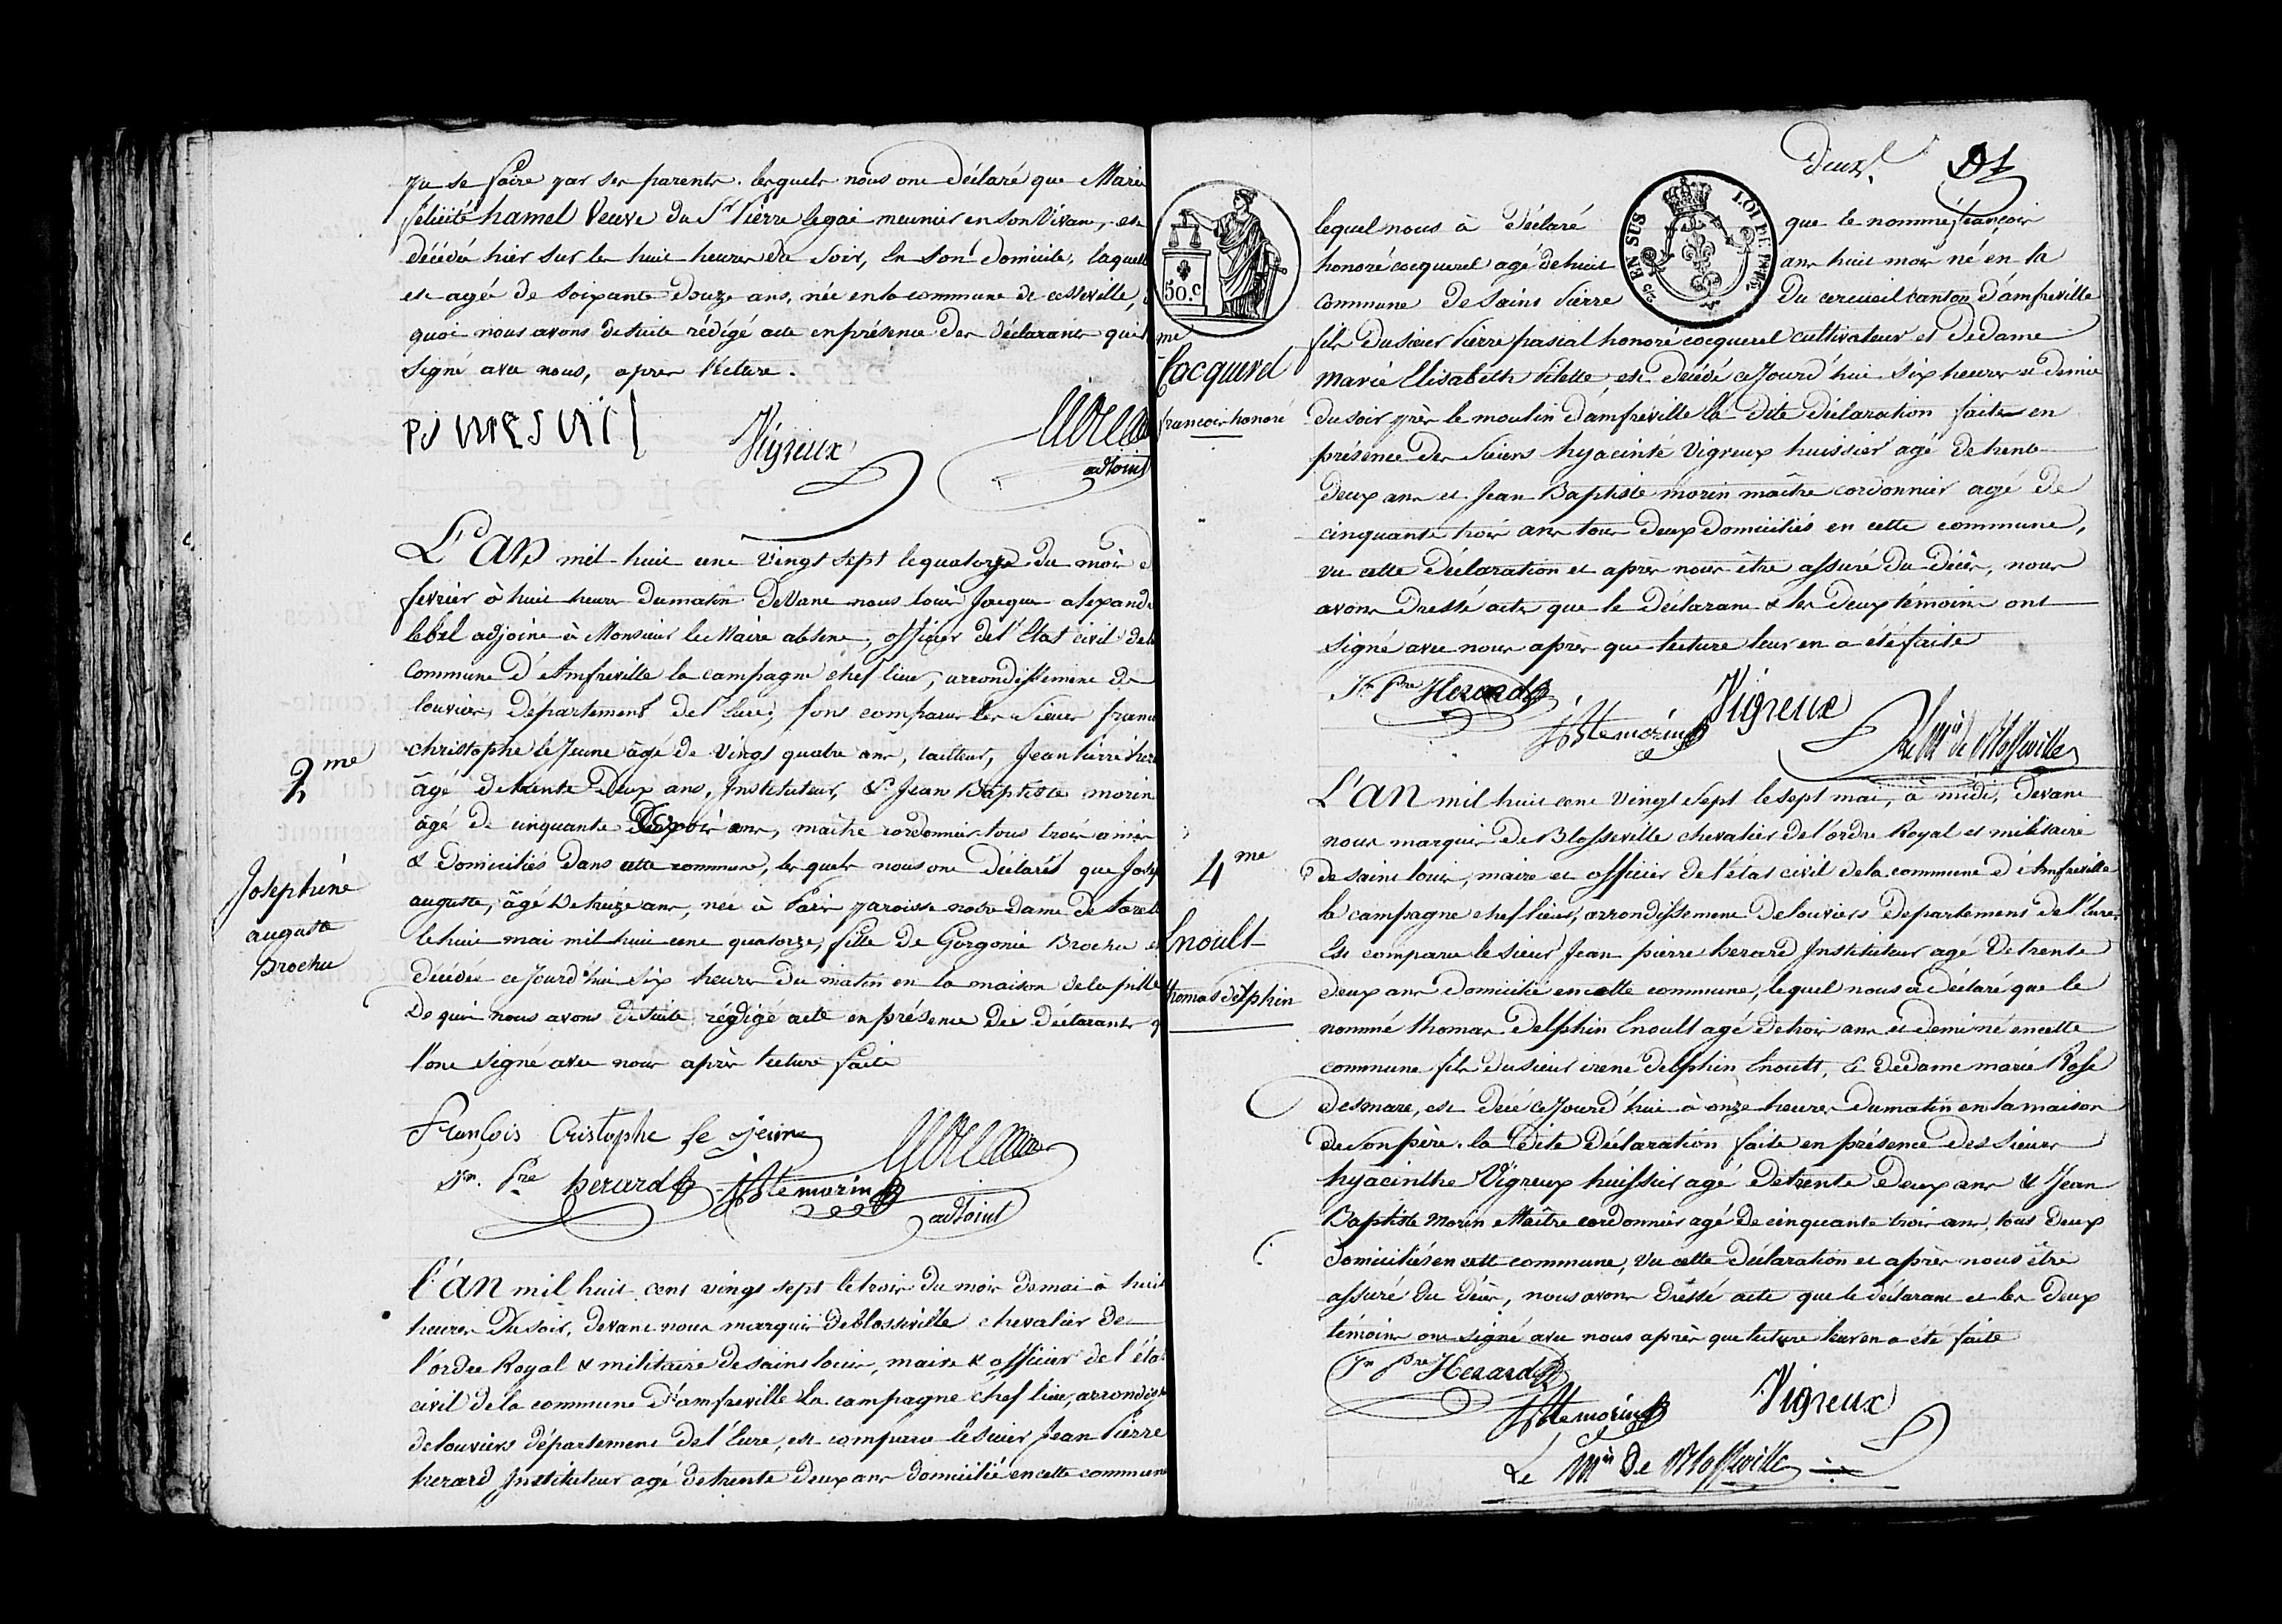 pu se faire par ses parents. lesquels nous ont déclaré que Marie
félicité hamel Veuve du Sr Pierre legai meunier en son Vivan, est
décédée hier sur les huit heures du Soir, en son domicile, laquelle
est agée de Soixante douze ans, née en la commune de
quoi nous avons de suite rédigé acte en présence des déclarants qui
signé avec nous, apres lecture.
Vigreux
adjoint
L'an mil huit cent vingt sept le quatorze du mois d
fevrier à huit heures du matin devant nous Louis Jacques alexandre
lebel adjoint à Monsieur le Maire absent, officier de l'Etat civil de la
Commune d'Amfreville la campagne chef lieu, arrondissement de
louviers, département de l'Eure, sont comparus les Sieurs franc
christophe le Jeune âgé de vingt quatre ans, tailleur, Jean Pierre hera
2me
âgé de trente deux ans, Instituteur, & Jean Baptiste morin
âgé de cinquante trois ans, maître cordonnier tous trois amis
& domiciliés dans cette commune, lesquels nous ont déclaré que Josep
Josephine
auguste
Brochu
auguste, âgé de treize ans, née à Paris paroisse notre dame de Loret
le huit mai mil huit cent quatorze, fille de Gorgonie Brochu est
décédée ce jourd'hui six heures du matin en la maison de la
De quoi nous avons de suite rédigé acte en présence des déclarants q
l'ont signé avec nous après lecture faite
François Cristophe le jeune
Jn. Pre herard
Jn Bte morin
adjoint
l'an mil huit cent vingt sept le trois du mois de mai à huit
heures du soir, devant nous marquis de blosseville chevalier de
l'ordre Royal & militaire de saint louis, maire & officier de l'état
civil de la commune d'amfreville la campagne chef lieu, arrondiss
de louviers département de l'Eure, est comparu le sieur Jean Pierre
herard Instituteur agé de trente deux ans domicilié en cette commune
deux
50.c
EN SUS
LOI DE
me
Cocquerel
francois honoré
lequel nous à déclaré que le nommé françois
honoré cocquerel agé de huit ans huit mois né en la
Commune de Saint Pierre du cercueil canton d'amfreville
fils du sieur Pierre pascal honoré cocquerel cultivateur et de dame
Marie Elisabeth est décédé ce jourd'hui six heures et demie
du soir près le moulin d'amfreville la dite déclaration faite en
présence des Sieurs hyacinte Vigreux huissier agé de trente
deux ans et Jean Baptiste morin maître cordonnier agé de
cinquante trois ans tous deux domiciliés en cette commune,
vu cette déclaration et après nous être assuré du décès, nous
avons dressé acte que le déclarant & les deux témoins ont
signé avec nous après que lecture leur en a été faite
Jn Pre Herard
Jn Bte morin
Vigreux
Le Mis de Blosseville
4me
Enoult
thomas delphin
L'an mil huit cent vingt sept le sept mai, à midi, devant
nous marquis de Blosseville chevalier de l'ordre Royal et militaire
de saint louis, maire et officier de l'état civil de la commune d'Amfreville
la campagne chef lieu, arrondissement de louviers departement de l'Eure,
Est comparu le sieur Jean pierre herard Instituteur agé de trente
deux ans domicilié en cette commune, lequel nous a déclaré que le
nommé thomas delphin Enoult agé de trois ans et demi né en cette
commune fils du sieur irené delphin Enoult, & de dame marie Rose
desmare, est décé ce jourd'hui à onze heures du matin en la maison
de son père. la dite déclaration faite en présence des sieurs
hyacinthe Vigreux huissier agé de trente deux ans & Jean
Baptiste Morin Maître cordonnier agé de cinquante trois ans, tous deux
domiciliés en cett commune, vu cette déclaration et après nous être
assuré du décès, nous avons dressé acte que le déclarant et les deux
témoins ont signé avec nous après que lecture leur en a été faite
Jn Pre Herard
Jn Bte morin
Vigreux
Le Mis de Blosseville